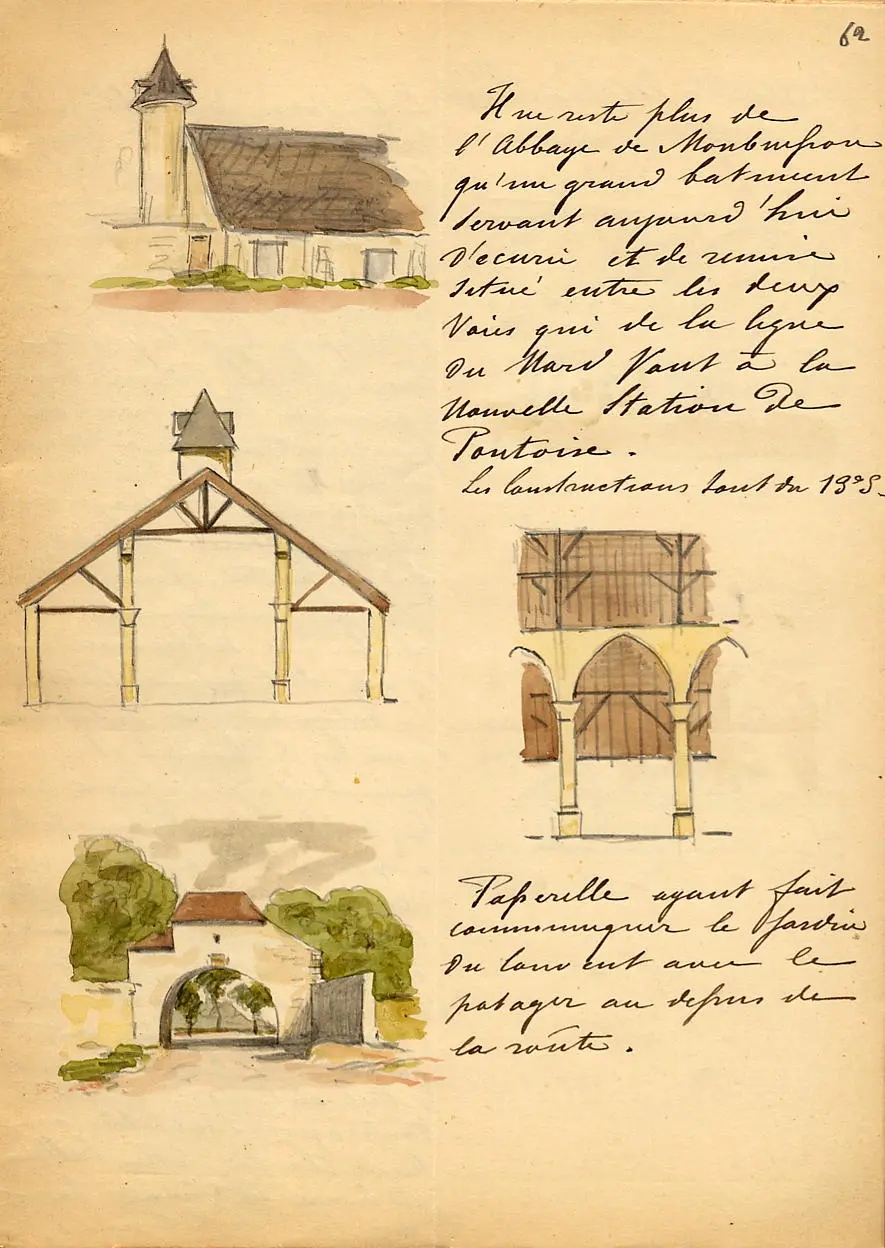 62
Il ne reste plus de
l'Abbaye de Monbuisson
qu'un grand batiment
servant aujourd'hui
d'ecurie et de remise
situé entre les deux
Voies qui de la ligne
du Nord Vont à la
Nouvelle Station De
Pontoise.
Les Constructions sont du 13e S.
Passerelle ayant fait
communiquer le Jardin
du Couvent avec le
potager au dessus de
la route.